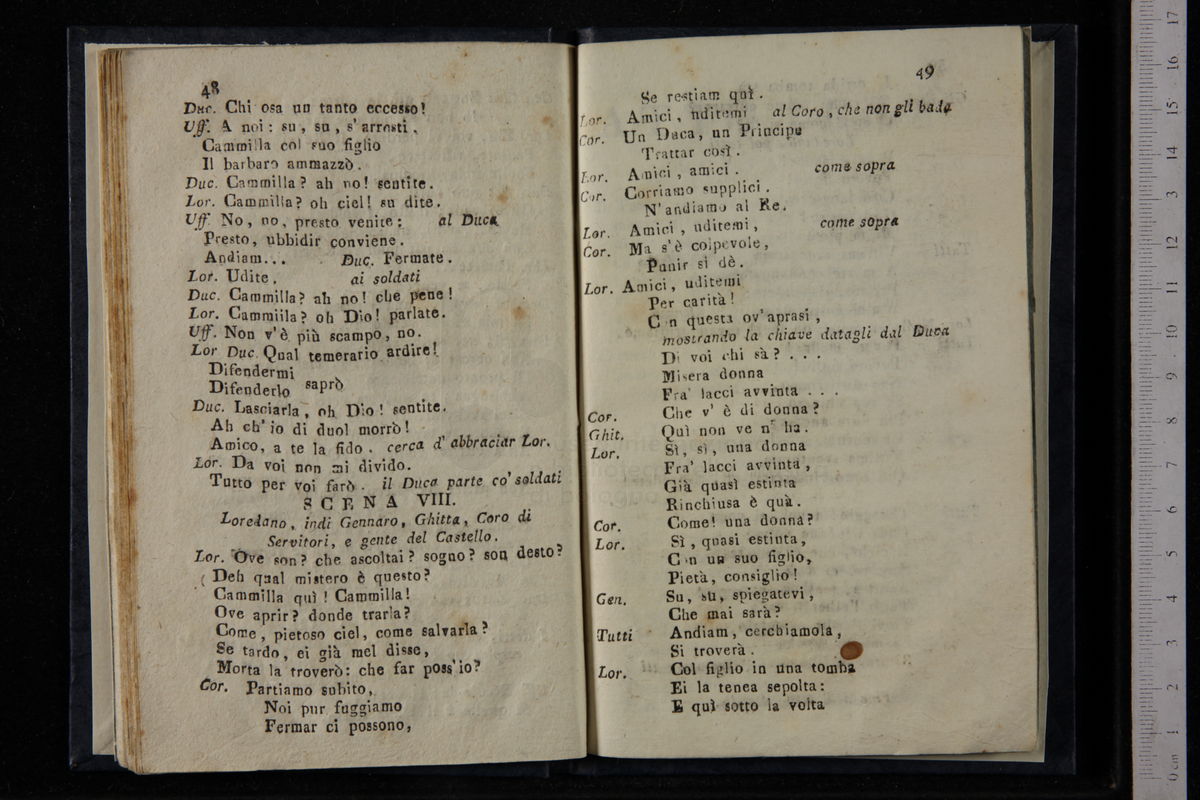 48
Duc. Chi osa un tanto eccesso!
Uff. A noi: su, su, s'arresti.
Cammilla col suo figlio
Il barbaro ammazzò.
Duc. Cammilla? ah no! sentite.
Lor. Cammilla? oh ciel! su dite.
Uff. No, no, presto venite: al Duca
Presto, ubbidir conviene.
Andiam... Duc. Fermate.
Lor. Udite. ai soldati
Duc. Cammilla? ah no! che pene!
Lor. Cammilla? oh Dio! parlate.
Uff. Non v'è più scampo, no.
Lor Duc. Qual temerario ardire!
Difendermi
Difenderlo saprò
Duc. Lasciarla, oh Dio! sentite.
Ah ch'io di duol morrò!
Amico, a te la fido. cerca d'abbraciar Lor.
Lor. Da voi non mi divido.
Tutto per voi farò. il Duca parte co' soldati
SCENA VIII.
Loredano, indi Gennaro, Ghitta, Coro di
Servitori, e gente del Castello.
Lor. Ove son? che ascoltai? sogno? son desto?
( Deh qual mistero è questo?
Cammilla quì! Cammilla!
Ove aprir? donde trarla?
Come, pietoso ciel, come salvarla?
Se tardo, ei già mel disse,
Morta la troverò: che far poss'io?
Cor. Partiamo subito,
Noi pur fuggiamo
Fermar ci possono,
49
Se restiam quì.
Lor. Amici, uditemi al Coro, che non gli bada
Cor. Un Duca, un Principe
Trattar così.
Lor. Amici, amici. come sopra
Cor. Corriamo supplici.
N'andiamo al Re.
Lor. Amici, uditemi, come sopra
Cor. Ma s'è colpevole,
Punir sì dè.
Lor. Amici, uditemi
Per carità!
Con questa ov'aprasi,
mostrando la chiave datagli dal Duca
Di voi chi sà? . . .
Misera donna
Fra' lacci avvinta . . .
Cor. Che v'è di donna?
Ghit. Quì non ve n'ha.
Lor. Sì, sì, una donna
Fra' lacci avvinta,
Già quasì estinta
Rinchiusa è quà.
Cor. Come! una donna?
Lor. Sì, quasi estinta,
Con un suo figlio,
Pietà, consiglio!
Gen. Su, su, spiegatevi,
Che mai sarà?
Tutti Andiam, cerchiamola,
Si troverà.
Lor. Col figlio in una tomba
Ei la tenea sepolta:
E quì sotto la volta